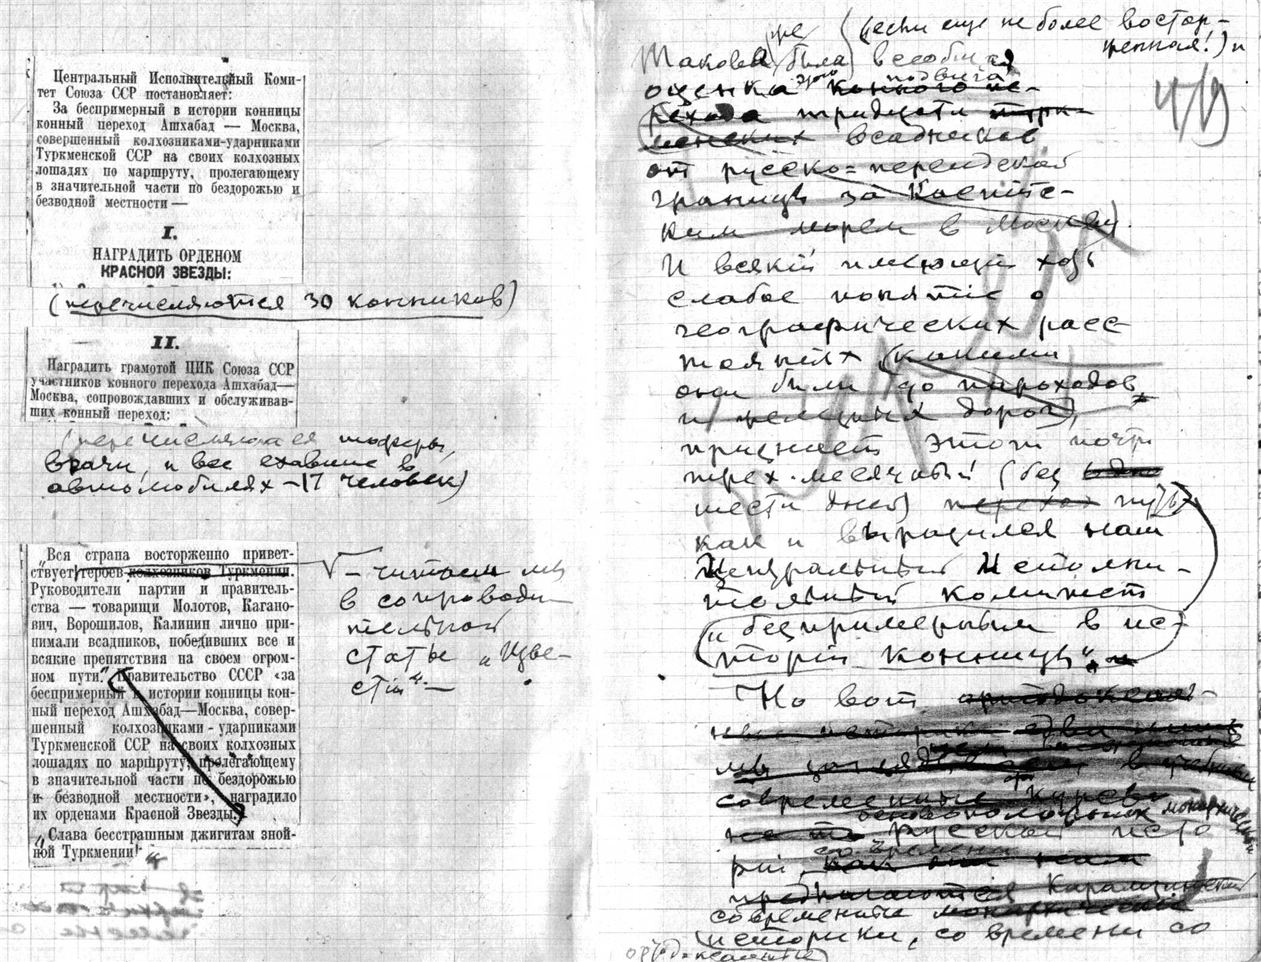 Центральный Исполнительный Коми-
тет Союза ССР постановляет:
За беспримерный в истории конницы
конный переход Ашхабад — Москва,
совершенный колхозниками-ударниками
Туркменской ССР на своих колхозных
лошадях по маршруту, пролегающему
в значительной части по бездорожью и
безводной местности —
I.
НАГРАДИТЬ ОРДЕНОМ
КРАСНОЙ ЗВЕЗДЫ:
(перечисляются 30 конников)
II.
Наградить грамотой ЦИК Союза ССР
участников конного перехода Ашхабад—
Москва, сопровождавших и обслуживав-
ших конный переход:
(перечисляются шоферы,
врачи, и все ехавшие в
автомобилях – 17 человек)
„Вся страна восторженно привет-
ствует героев колхозников Туркмении.
Руководители партии и правитель-
ства — товарищи Молотов, Кагано-
вич, Ворошилов, Калинин лично при-
нимали всадников, победивших все и
всякие препятствия на своем огром-
ном пути." Правительство СССР «за
беспримерный в истории конницы кон-
ный переход Ашхабад—Москва, совер-
шенный колхозниками-ударниками
Туркменской ССР на своих колхозных
лошадях по маршруту, пролегающему
в значительной части по бездорожью
и безводной местности», наградило
их орденами Красной Звезды.
„Слава бесстрашным джигитам зной-
ной Туркмении!"
– читаем мы
в сопроводи
тельной
статье „Изве-
стій". –
(если еще не более востор-
женная!) и
Такова же была всеобщая
оценка этого подвига конного пе-
рехода тридцати турк-
менских всадников
от русско=персидской
границы за Каспійс-
ким морем в Москву.
И всякій имеющій хоть
слабое понятіе о
географических расс-
тояніях (какими
они были до пароходов
и железных дорог),
признает этот почти
трех-месячный (без
шести дней) переход путь
как и выразился наш
Центральный Исполни-
тельный комитет
„и беспримерным в ис-
торіи конницы",
Но вот
современные
русской исто
ріи,
предлагаются
современные монархические
историки, со времени со